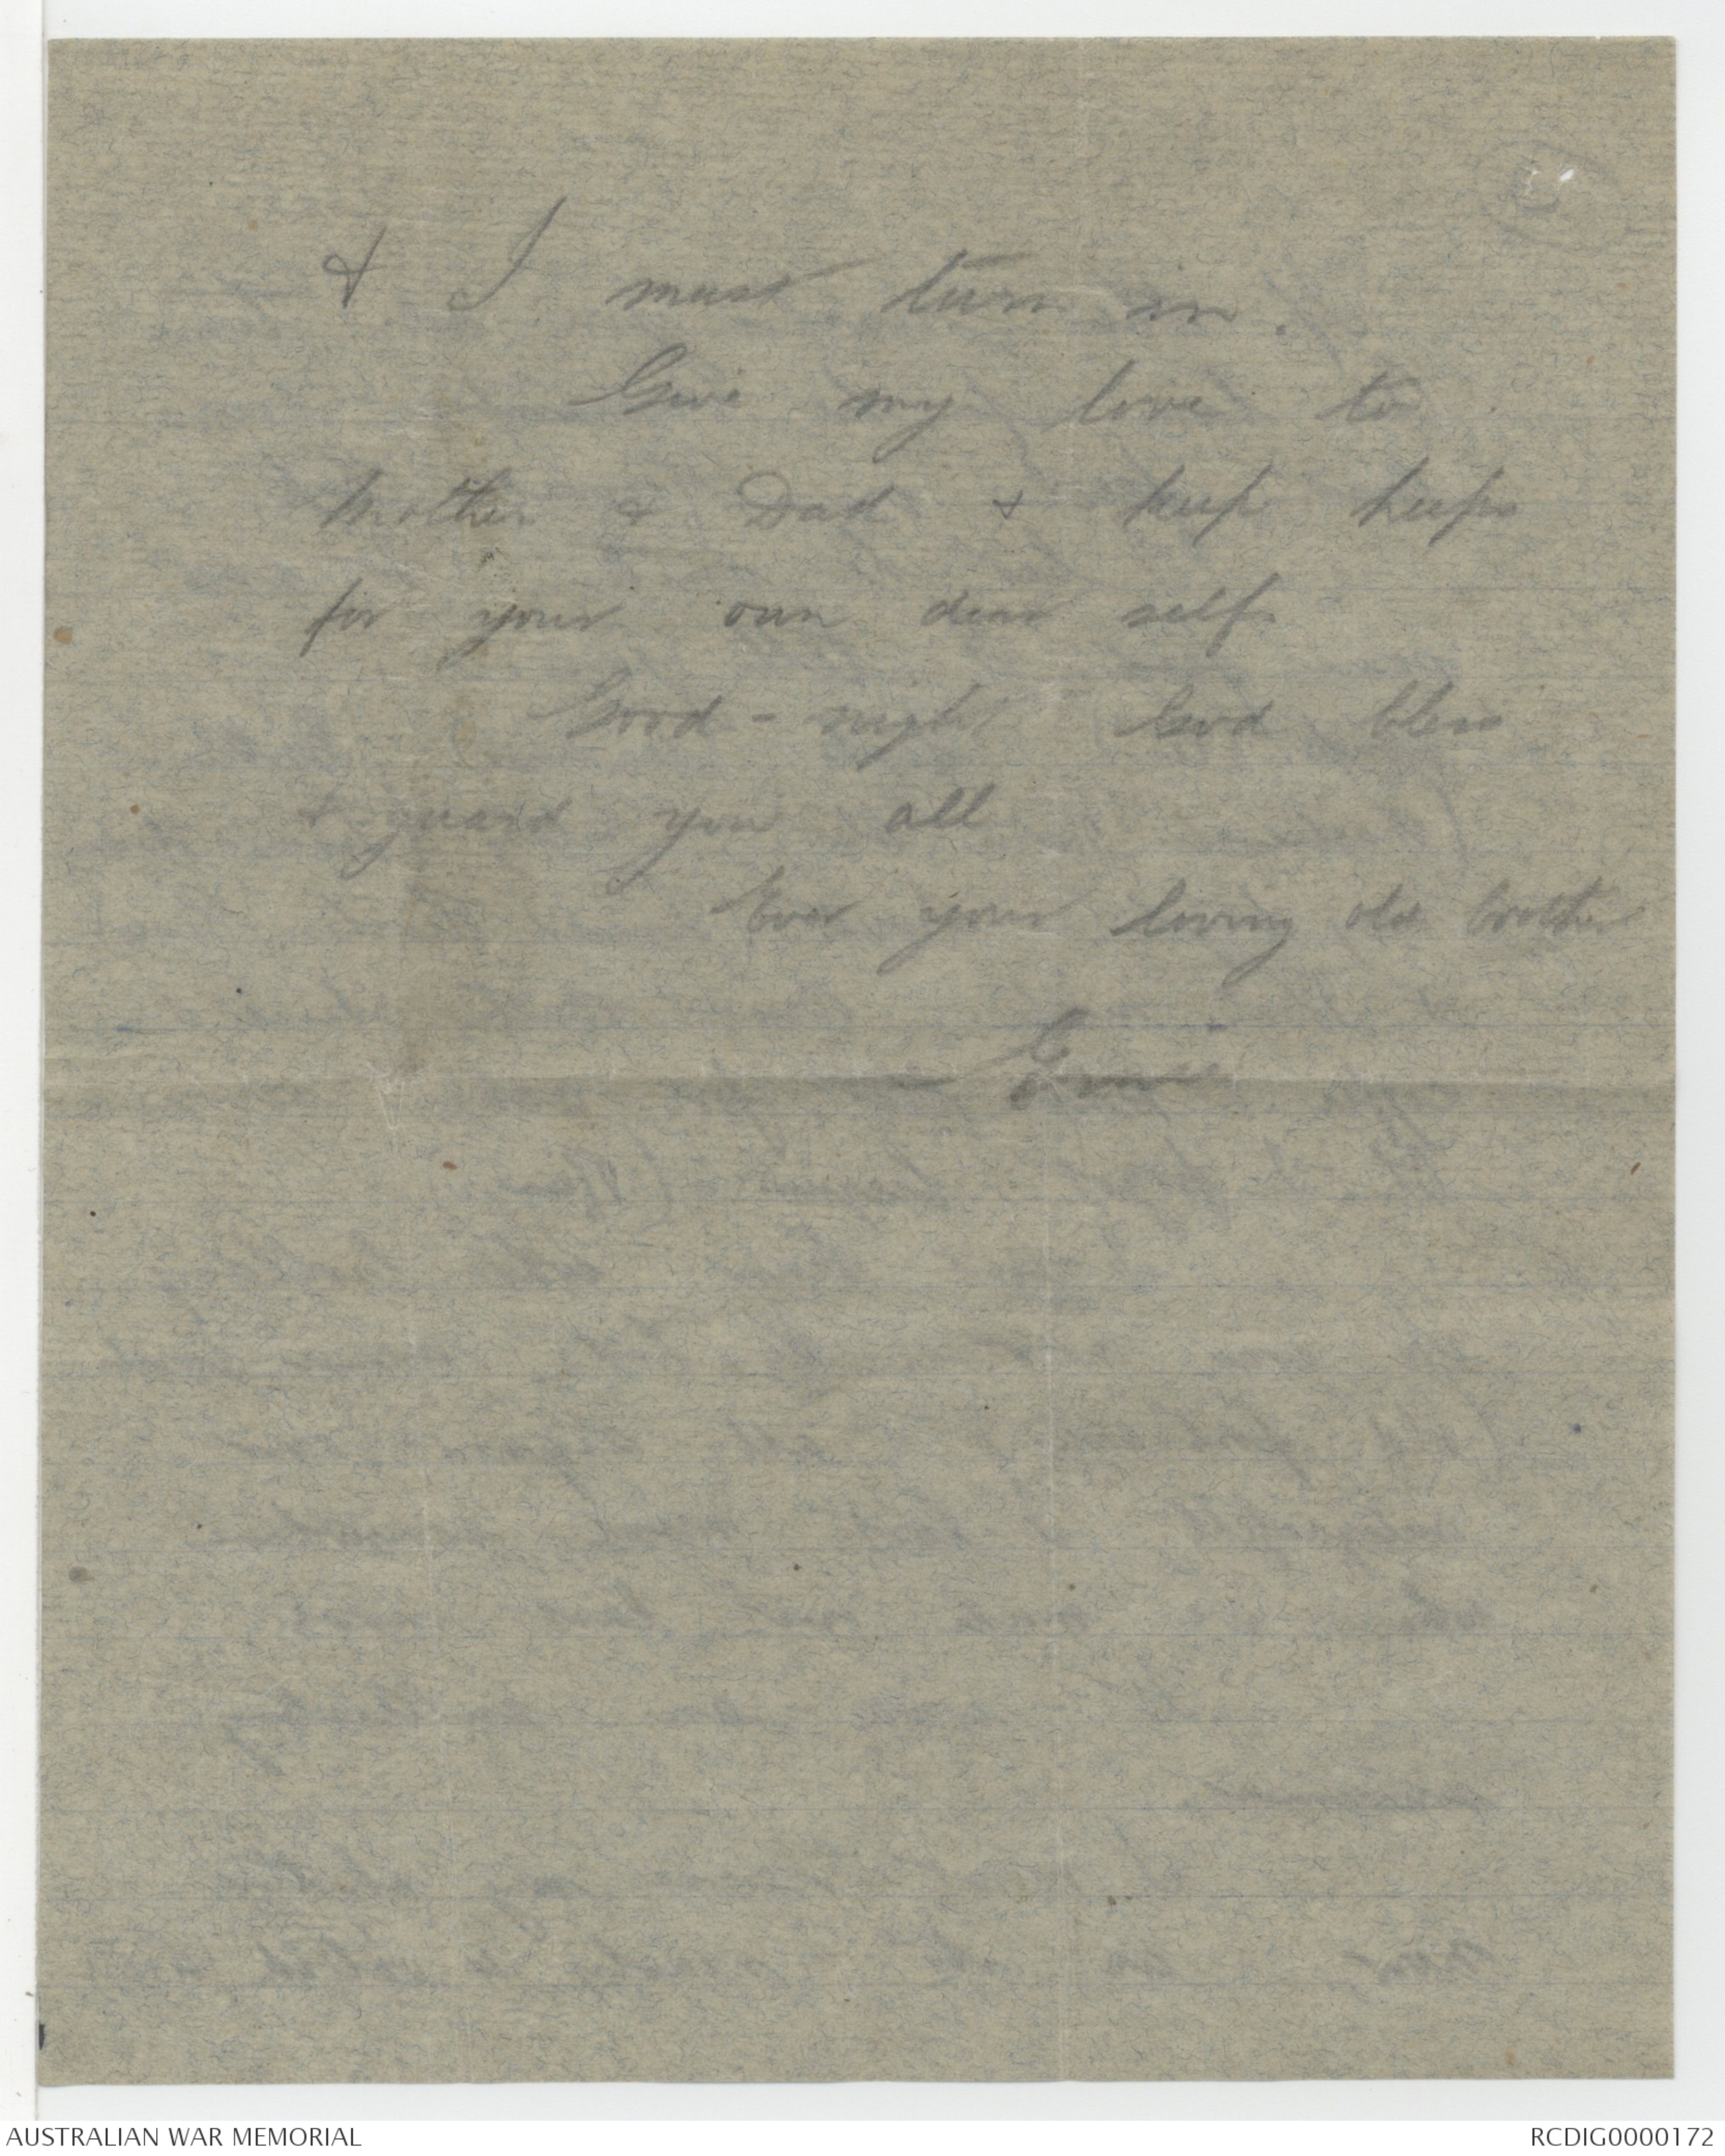 & I must turn in.
Give my love to
Mother & Dad & keep heaps
for your own dear self.
Good-night God bless
& guard you all
Ever your loving old brother
AUSTRALIAN WAR MEMORIAL
RCDIG0000172